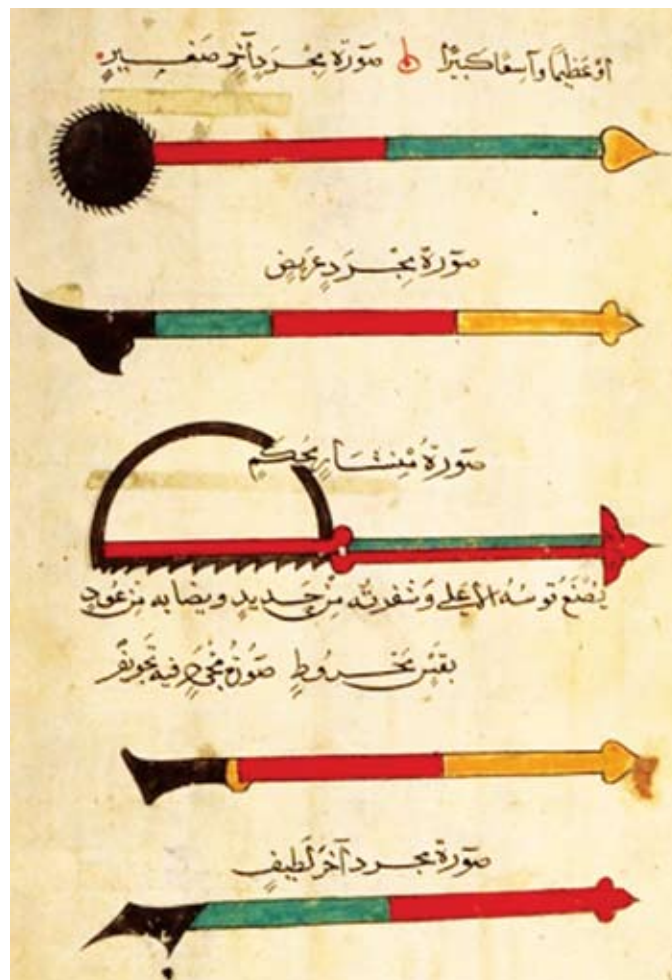 او عظيمًا واسعًا كبيرًا صورة مجرد آخر صغير
صورة مجرد عريض
صورة منشار محكم
يصنع قوسه الاعلى وشفرته من حديد ونصابه من عود
بقس مخروط صورة مجرد فيه تجويف
صورة مجرد آخر لطيف